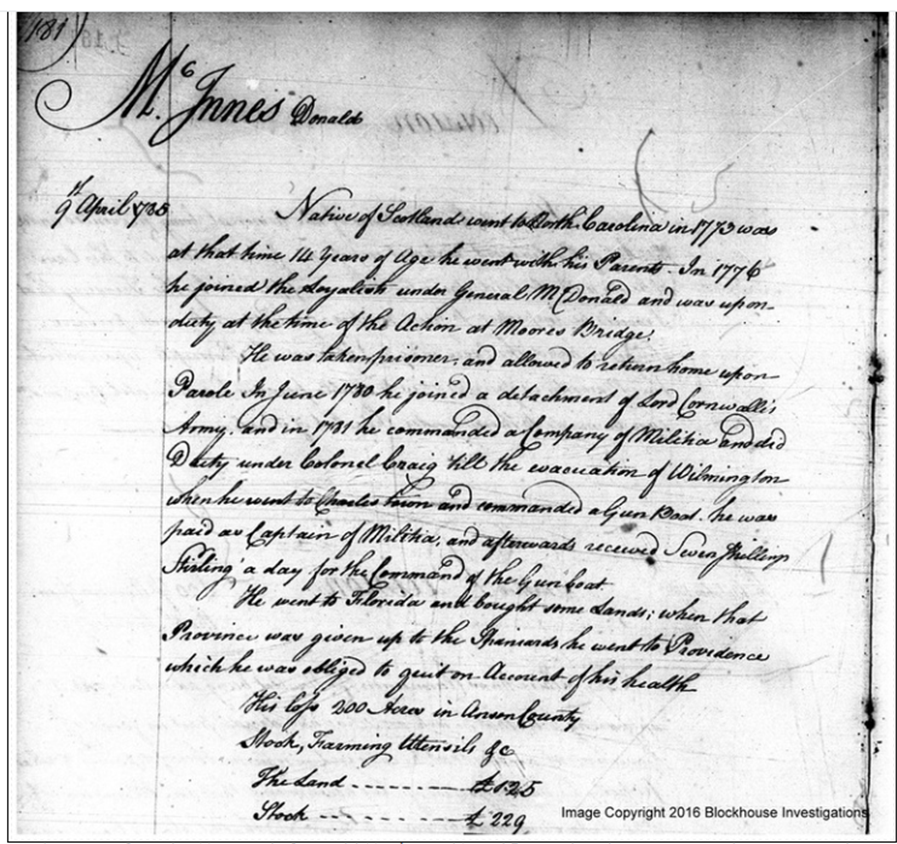 181
McInnes Donald
9th April 1785
Native of Scotland went to North Carolina in 1773 was
at that time 14 Years of Age he went with his Parents - In 1776
he joined the Loyalists under General McDonald and was upon
duty at the time of the Action at Moores Bridge.
He was taken prisoner, and allowed to return home upon
Parole In June 1780 he joined a detachment of Lord Cornwallis
Army, and in 1781 he commanded a Company of Militia and did
Duty under Colonel Craig till the evacuation of Wilmington
when he went to Charles town and commanded a Gun Boat. he was
paid as Captain of Militia, and afterwards received Seven Shillings
Stirling a day for the Command of the Gun boat
He went to Florida and bought some Lands; when that
Province was given up to the Spaniards he went to Providence
which he was obliged to quit on Account of his health
His loss 200 Acres in Anson County
Stock, Farming Utensils &c
The Land - - - - - - - - - £125
Stock - - - - - - - - - £229
Image Copyright 2016 Blockhouse Investigations